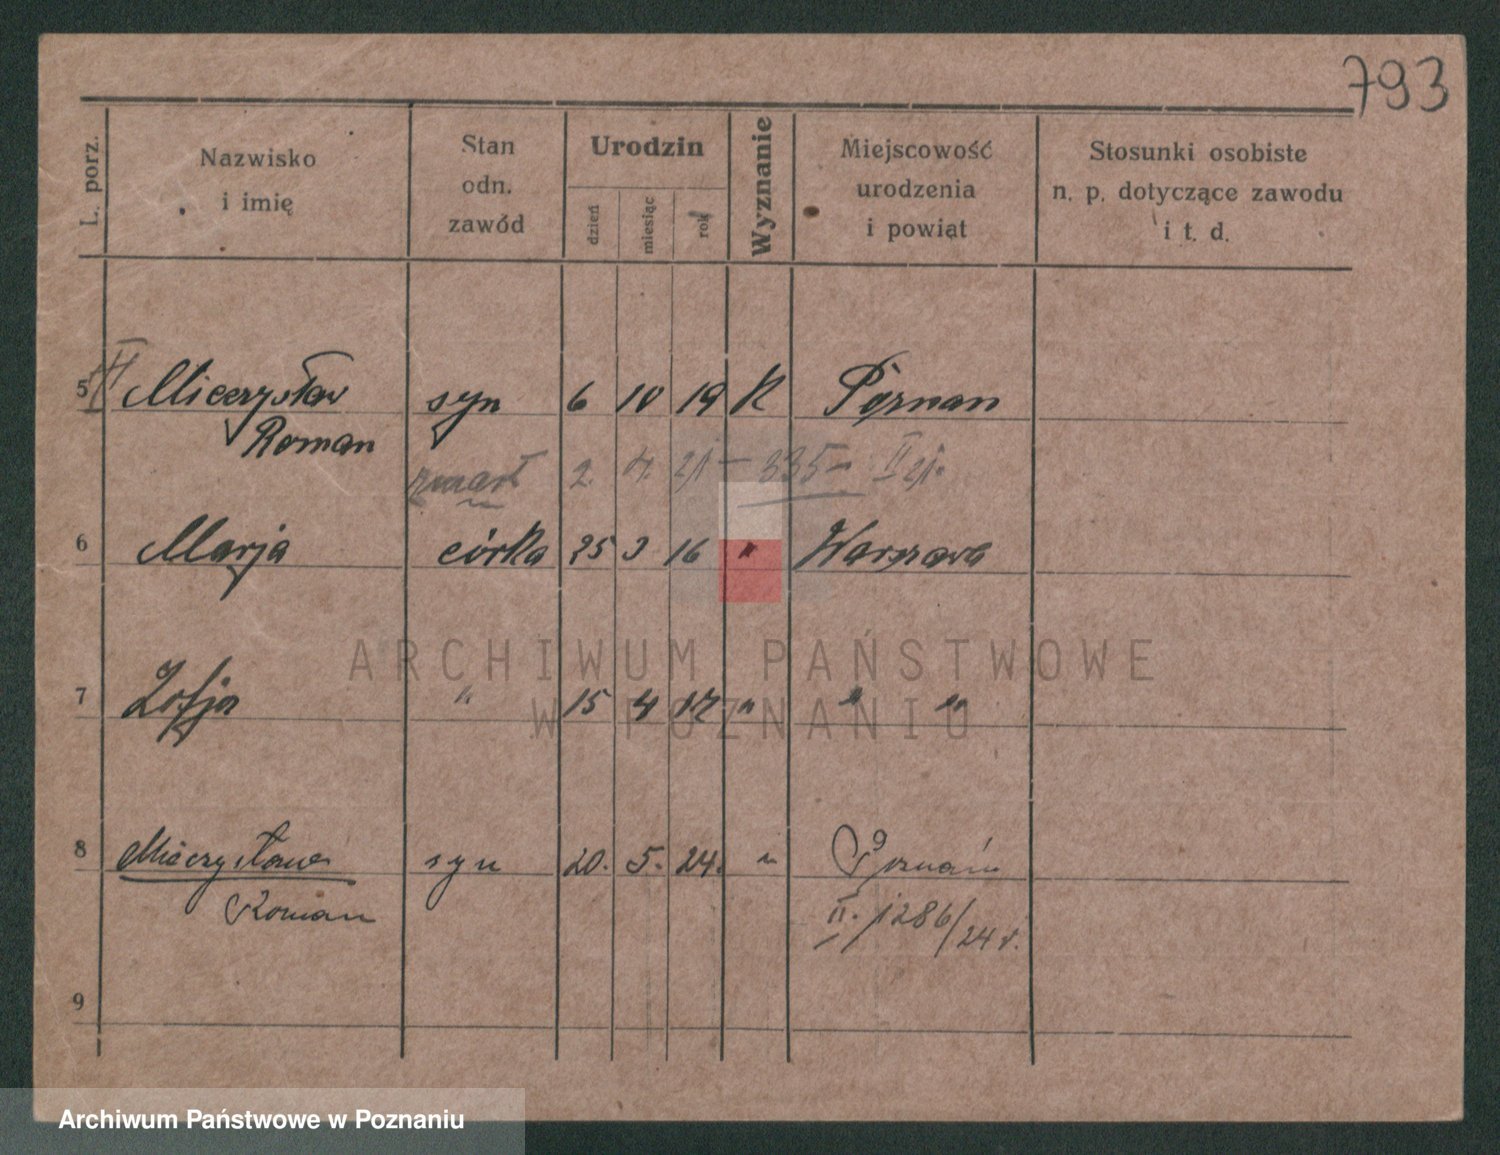 793
L. porz.
Nazwisko
i imię
Stan
odn.
zawód
Urodzin
dzień
miesiąc
rok
Wyznanie
Miejscowość
urodzenia
i powiat
Stosunki osobiste
n. p. dotyczące zawodu
i t. d.
5 Mieczysław syn 6 10 19 K Poznan
Roman
zmarł 2. 4. 21 – 335 – II 21.
6 Marja córka 25 3 16 " Warszawa
ARCHIWUM PAŃSTWOWE
7 Zofja " 15 4 17 " " "
W POZNANIU
8 Mieczysław syn 20. 5. 24. " Poznań
Roman
II. 1286/24 r.
9
Archiwum Państwowe w Poznaniu